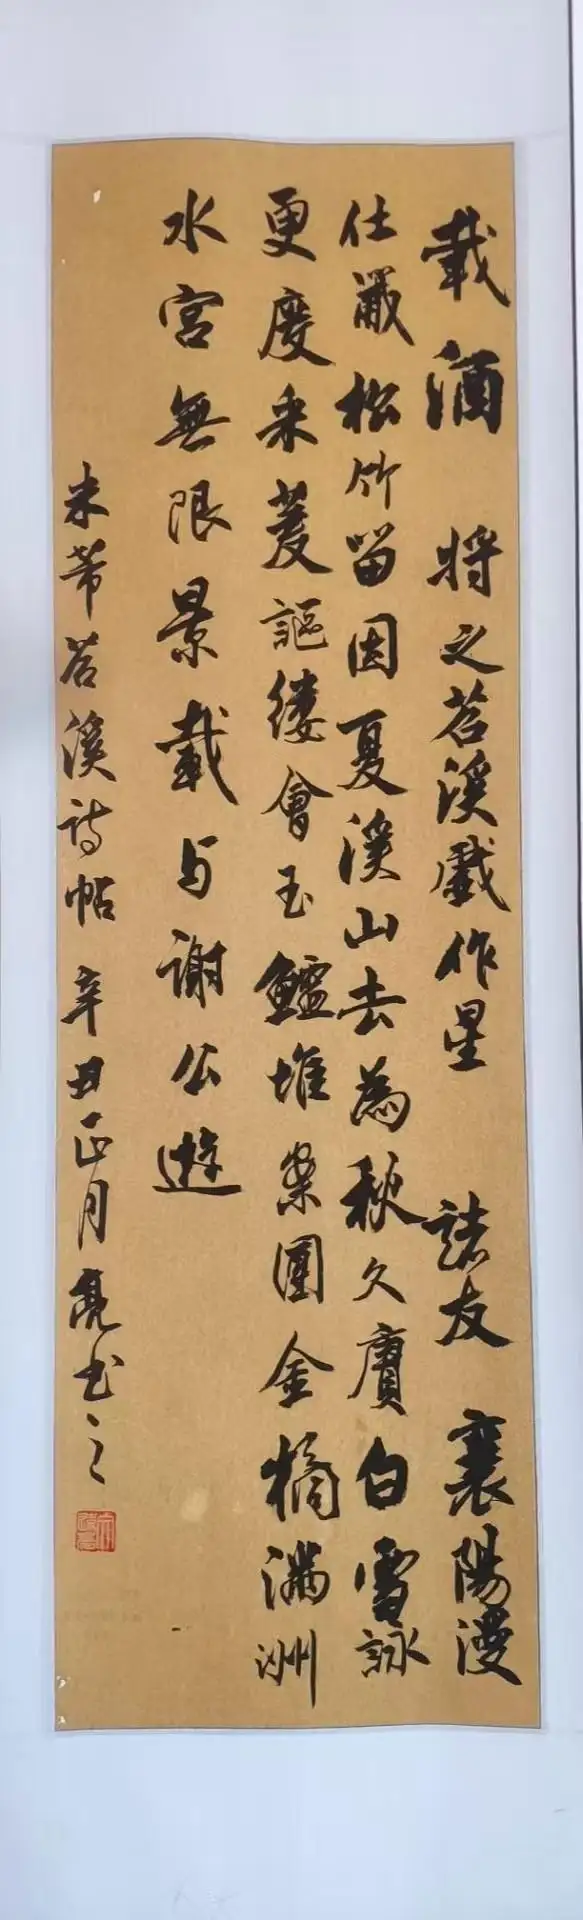 載酒 将之苕溪戲作呈 諸友 襄陽漫
仕 澉松竹留因夏溪山去為秋久賡白雪詠
更度采菱謳缕會玉鱸堆案團金橘滿洲
水宮無限景載与謝公遊
米芾苕溪诗帖 辛丑正月亮书之